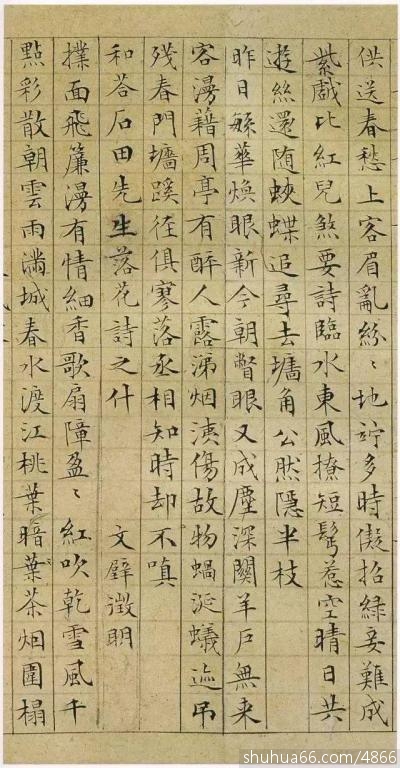 供送春愁上客眉亂紛〻地竚多時儗招綠妾難成
些戲比紅兒煞要詩臨水東風撩短鬂惹空晴日共
遊絲還随蛺蝶追尋去墻角公然隱半枝
昨日繁華煥眼新今朝瞥眼又成塵深關羊戶無来
客漫藉周亭有醉人露涕烟洟傷故物蝸涎蟻迹吊
殘春門墻蹊徑俱寥落丞相知時却不嗔
和荅石田先生落花詩之什 文壁徵明
撲面飛簾漫有情細香歌扇障盈〻紅吹乾雪風千
點彩散朝雲雨滿城春水渡江桃葉暗葉茶烟圍榻
shuhua66.com/4866